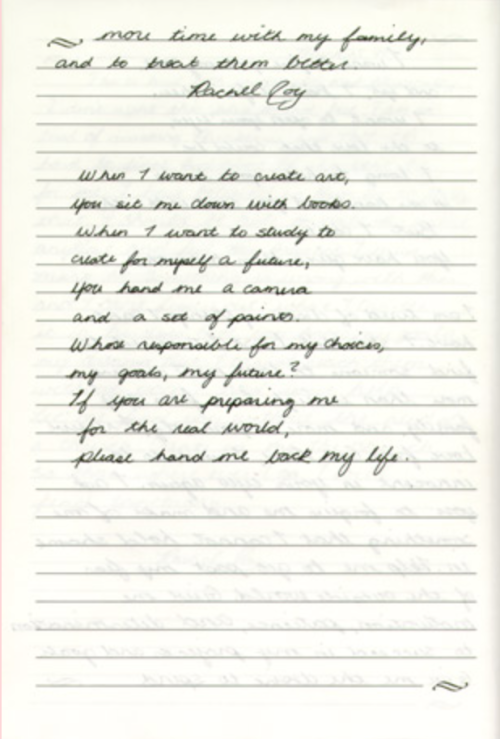 more time with my family,
and to treat them better.
Rachel Coy
When I want to create art,
you sit me down with books.
When I want to study to
create for myself a future,
you hand me a camera
and a set of paints.
Whose responsible for my choices,
my goals, my future?
If you are preparing me
for the real world,
please hand me back my life.